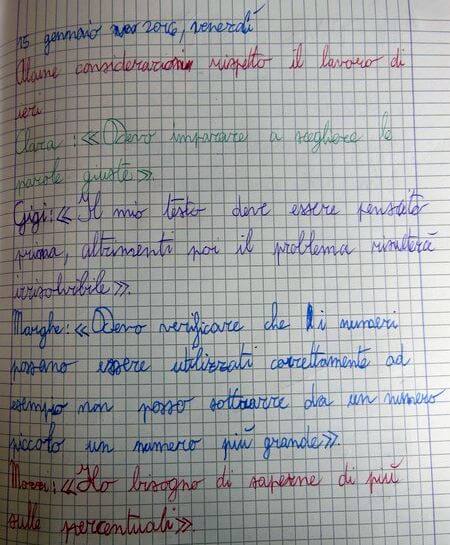 15 gennaio 2016, venerdì
Alcune considerazioni rispetto il lavoro di
ieri
Clara: «Devo imparare a scegliere le
parole giuste».
Gigi: «Il mio testo deve essere pensato
prima, altrimenti poi il problema risulterà
irrisolvibile».
Marghe: «Devo verificare che i numeri
possano essere utilizzati correttamente ad
esempio non posso sottrarre da un numero
piccolo un numero più grande».
«Ho bisogno di saperne di più
sulle percentuali».